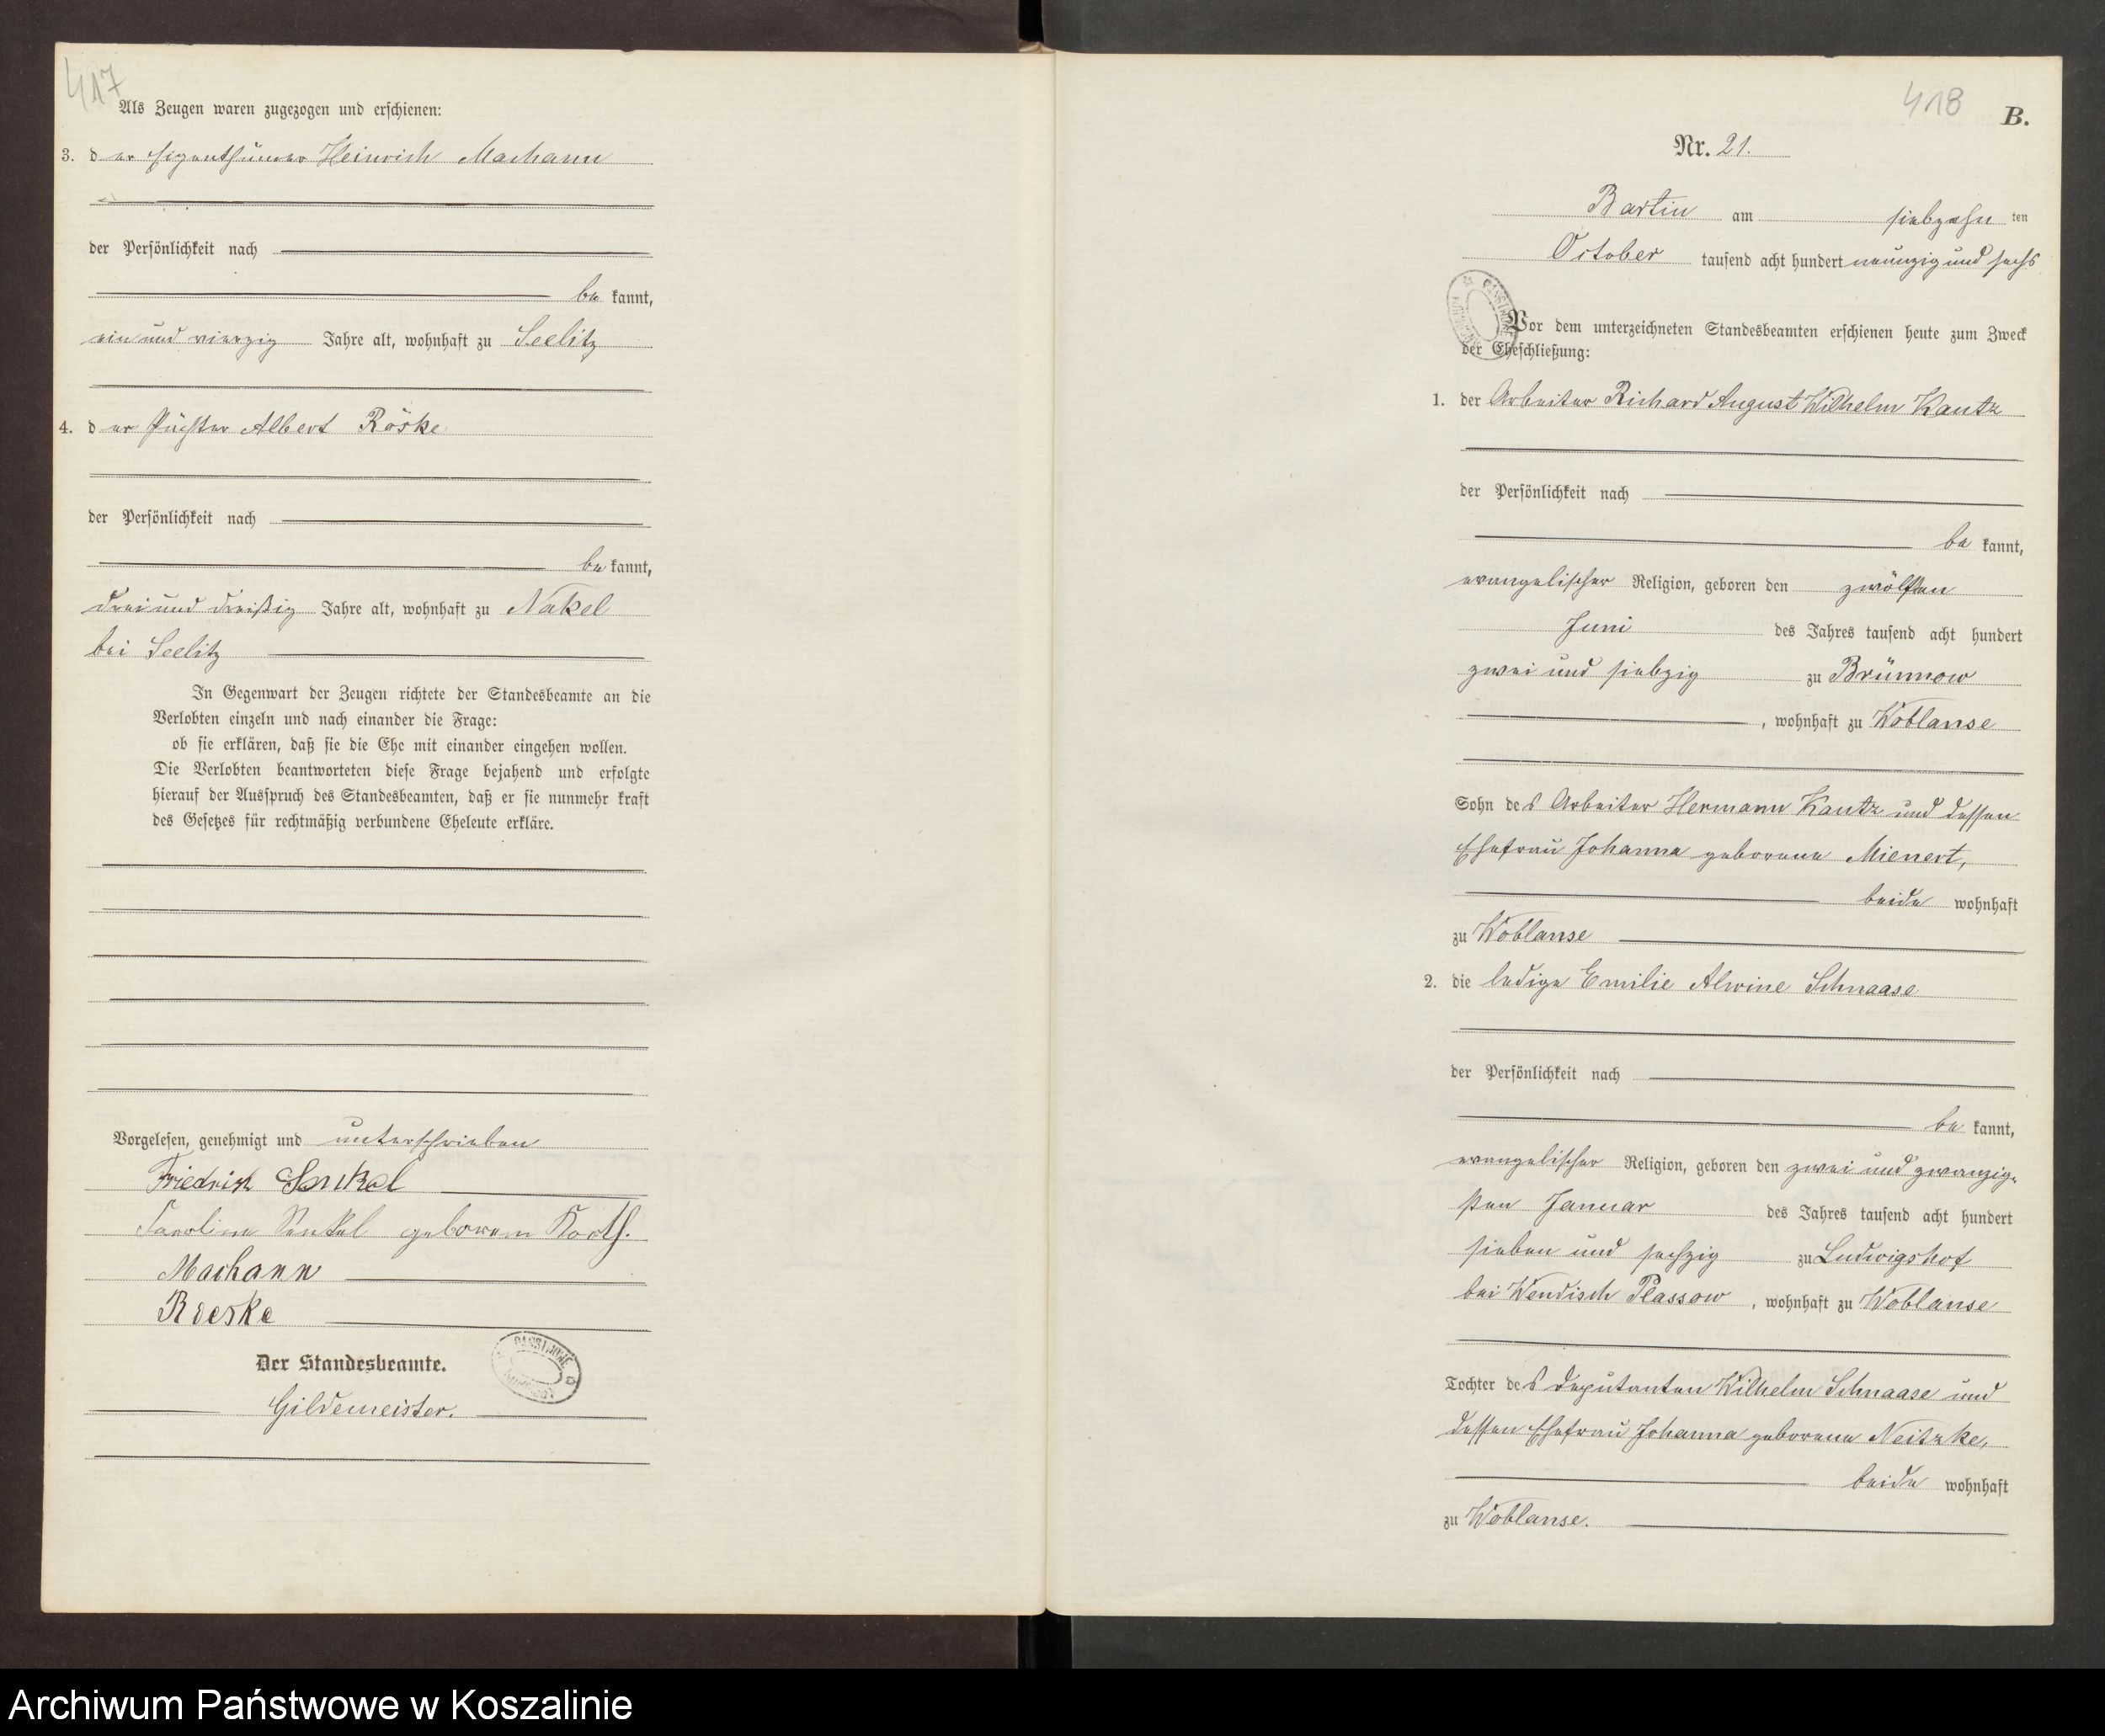 417
Als Zeugen waren zugezogen und erschienen:
3. der Eigenthümer Heinrich Machann
der Persönlichkeit nach
be kannt,
ein und vierzig Jahre alt, wohnhaft zu Seelitz
4. der Pächter Albert Röske
der Persönlichkeit nach
be kannt,
drei und dreißig Jahre alt, wohnhaft zu Nakel
bei Seelitz
In Gegenwart der Zeugen richtete der Standesbeamte an die
Verlobten einzeln und nach einander die Frage:
ob sie erklären, daß sie die Ehe mit einander eingehen wollen.
Die Verlobten beantworteten diese Frage bejahend und erfolgte
hierauf der Ausspruch des Standesbeamten, daß er sie nunmehr kraft
des Gesetzes für rechtmäßig verbundene Eheleute erkläre.
Vorgelesen, genehmigt und unterschrieben
Friedrich Senkel
Karoline Senkel geborene
Machann
Roeske
Der Standesbeamte.
Gildemeister.
418
B.
Nr. 21.
Bartin am siebzehn ten
October tausend acht hundert neunzig und sechs
Vor dem unterzeichneten Standesbeamten erschienen heute zum Zweck
der Eheschließung:
1. der Arbeiter Richard August Wilhelm Kautz
der Persönlichkeit nach
be kannt,
evangelischer Religion, geboren den zwölften
Juni des Jahres tausend acht hundert
zwei und siebzig zu Brünnow
, wohnhaft zu Woblanse
Sohn des Arbeiter Hermann Kautz und dessen
Ehefrau Johanna geborene Mienert,
beide wohnhaft
zu Woblanse
2. die ledige Emilie Alwine Schnaase
der Persönlichkeit nach
be kannt,
evangelischer Religion, geboren den zwei und zwanzig-
sten Januar des Jahres tausend acht hundert
sieben und sechzig zu Ludwigshof
bei Wendisch Plassow, wohnhaft zu Woblanse
Tochter des Deputanten Wilhelm Schnaase und
dessen Ehefrau Johanna geborene Neitzke,
beide wohnhaft
zu Woblanse.
Archiwum Państwowe w Koszalinie